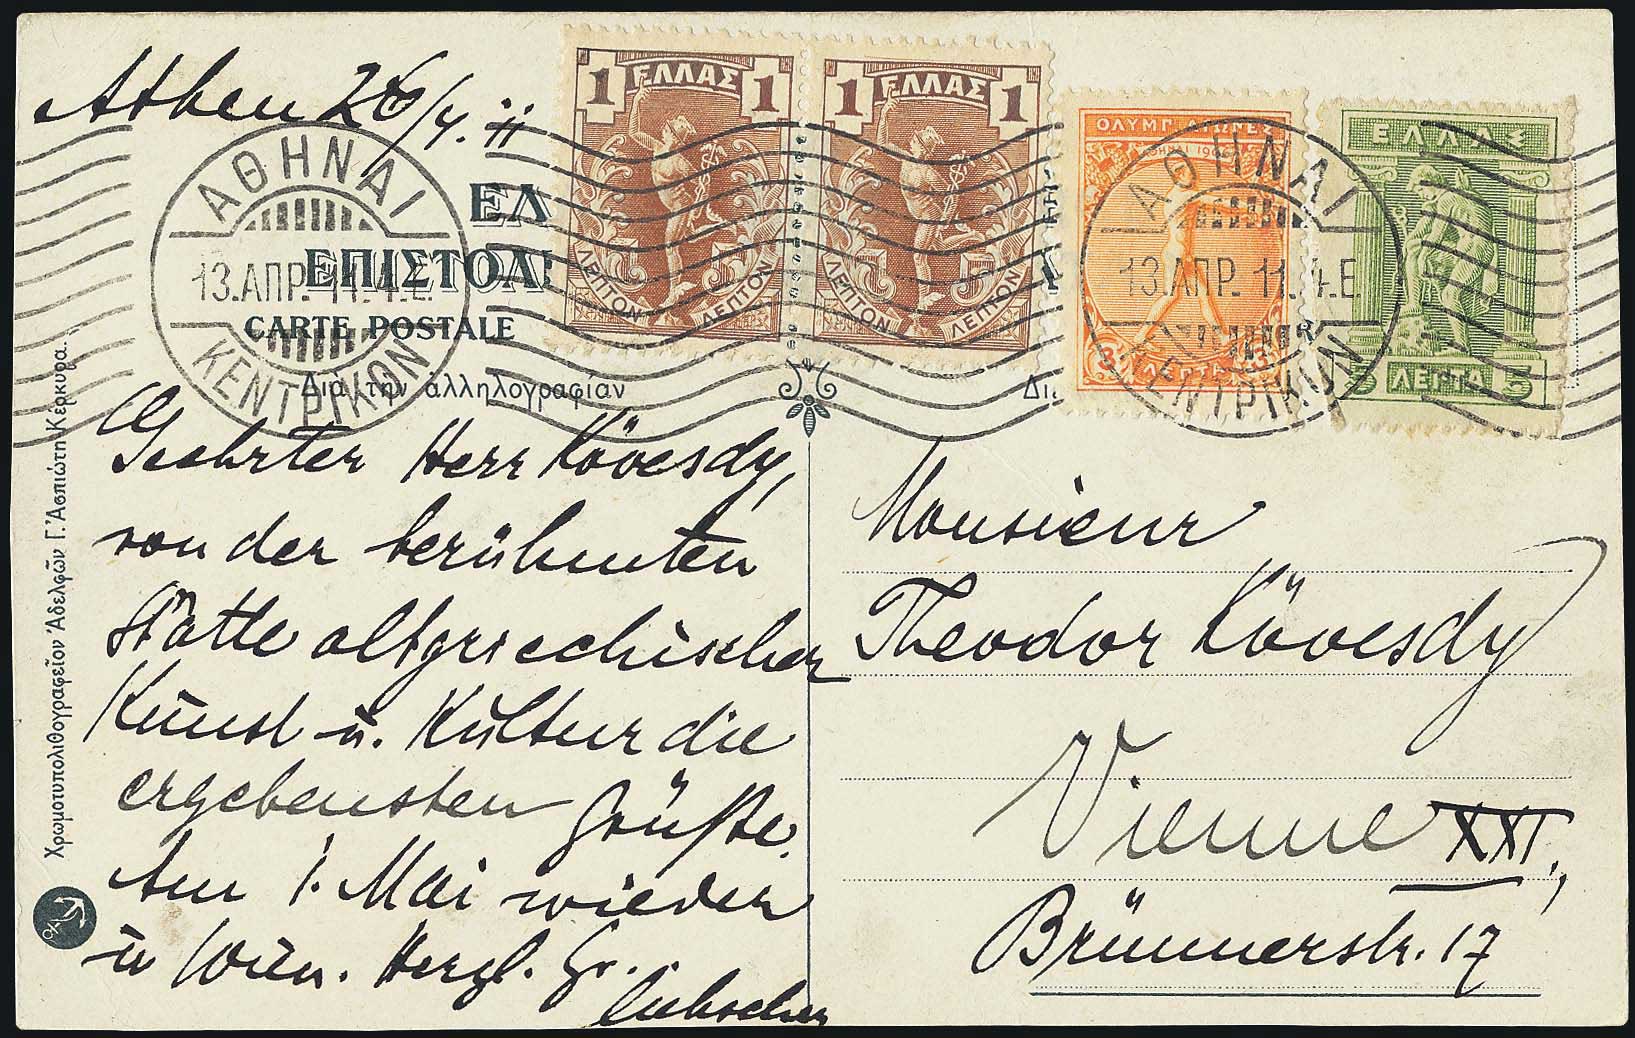 Athen 26/4. 11
1 ΕΛΛΑΣ 1
ΛΕΠΤΟΝ ΛΕΠΤΟΝ
1 ΕΛΛΑΣ 1
ΛΕΠΤΟΝ ΛΕΠΤΟΝ
ΟΛΥΜΠ. ΑΓΩΝΕΣ
3 ΛΕΠΤΑ
ΕΛΛΑΣ
5 ΛΕΠΤΑ 5
ΑΘΗΝΑΙ
13.ΑΠΡ. 11.4.Ε.
ΚΕΝΤΡΙΚΟΝ
ΑΘΗΝΑΙ
13.ΑΠΡ. 11.4.Ε
ΚΕΝΤΡΙΚΟΝ
ΕΛ
ΕΠΙΣΤΟΛ
CARTE POSTALE
Διὰ τὴν ἀλληλογραφίαν
Geehrter Herr Kövesdy,
von der berühmten
Stätte altgriechischer
Kunst u. Kultur die
ergebensten Grüße.
Am 1. Mai wieder
in Wien. Herzl. Gr.
Monsieur
Theodor Kövesdy
Vienne XXI.,
Brünnerstr. 17
Χρωμοτυπολιθογραφεῖον Ἀδελφῶν Γ. Ἀσπιώτη Κέρκυρα.